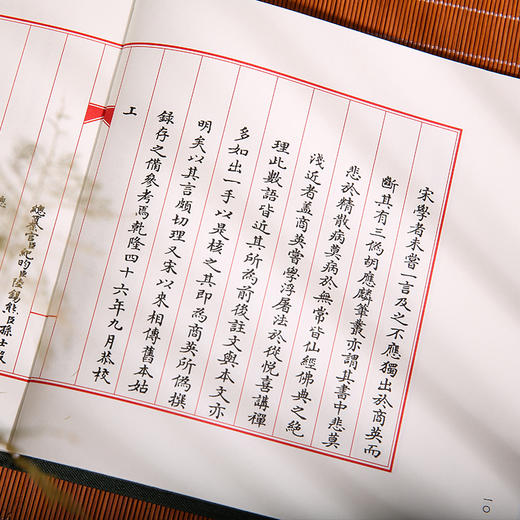 宋學者未嘗一言及之不應獨出於商英而
斷其有三偽胡應麟筆叢亦謂其書中悲莫
悲於精散病莫病於無常皆仙經佛典之絕
淺近者蓋商英嘗學浮屠法於從悅喜講禪
理此數語皆近其所為前後註文與本文亦
多如出一手以是核之其即為商英所偽撰
明矣以其言頗切理又宋以來相傳舊本姑
錄存之備參考焉乾隆四十六年九月恭校
上
總纂官臣紀昀臣陸錫熊臣孫士毅
總
一〇